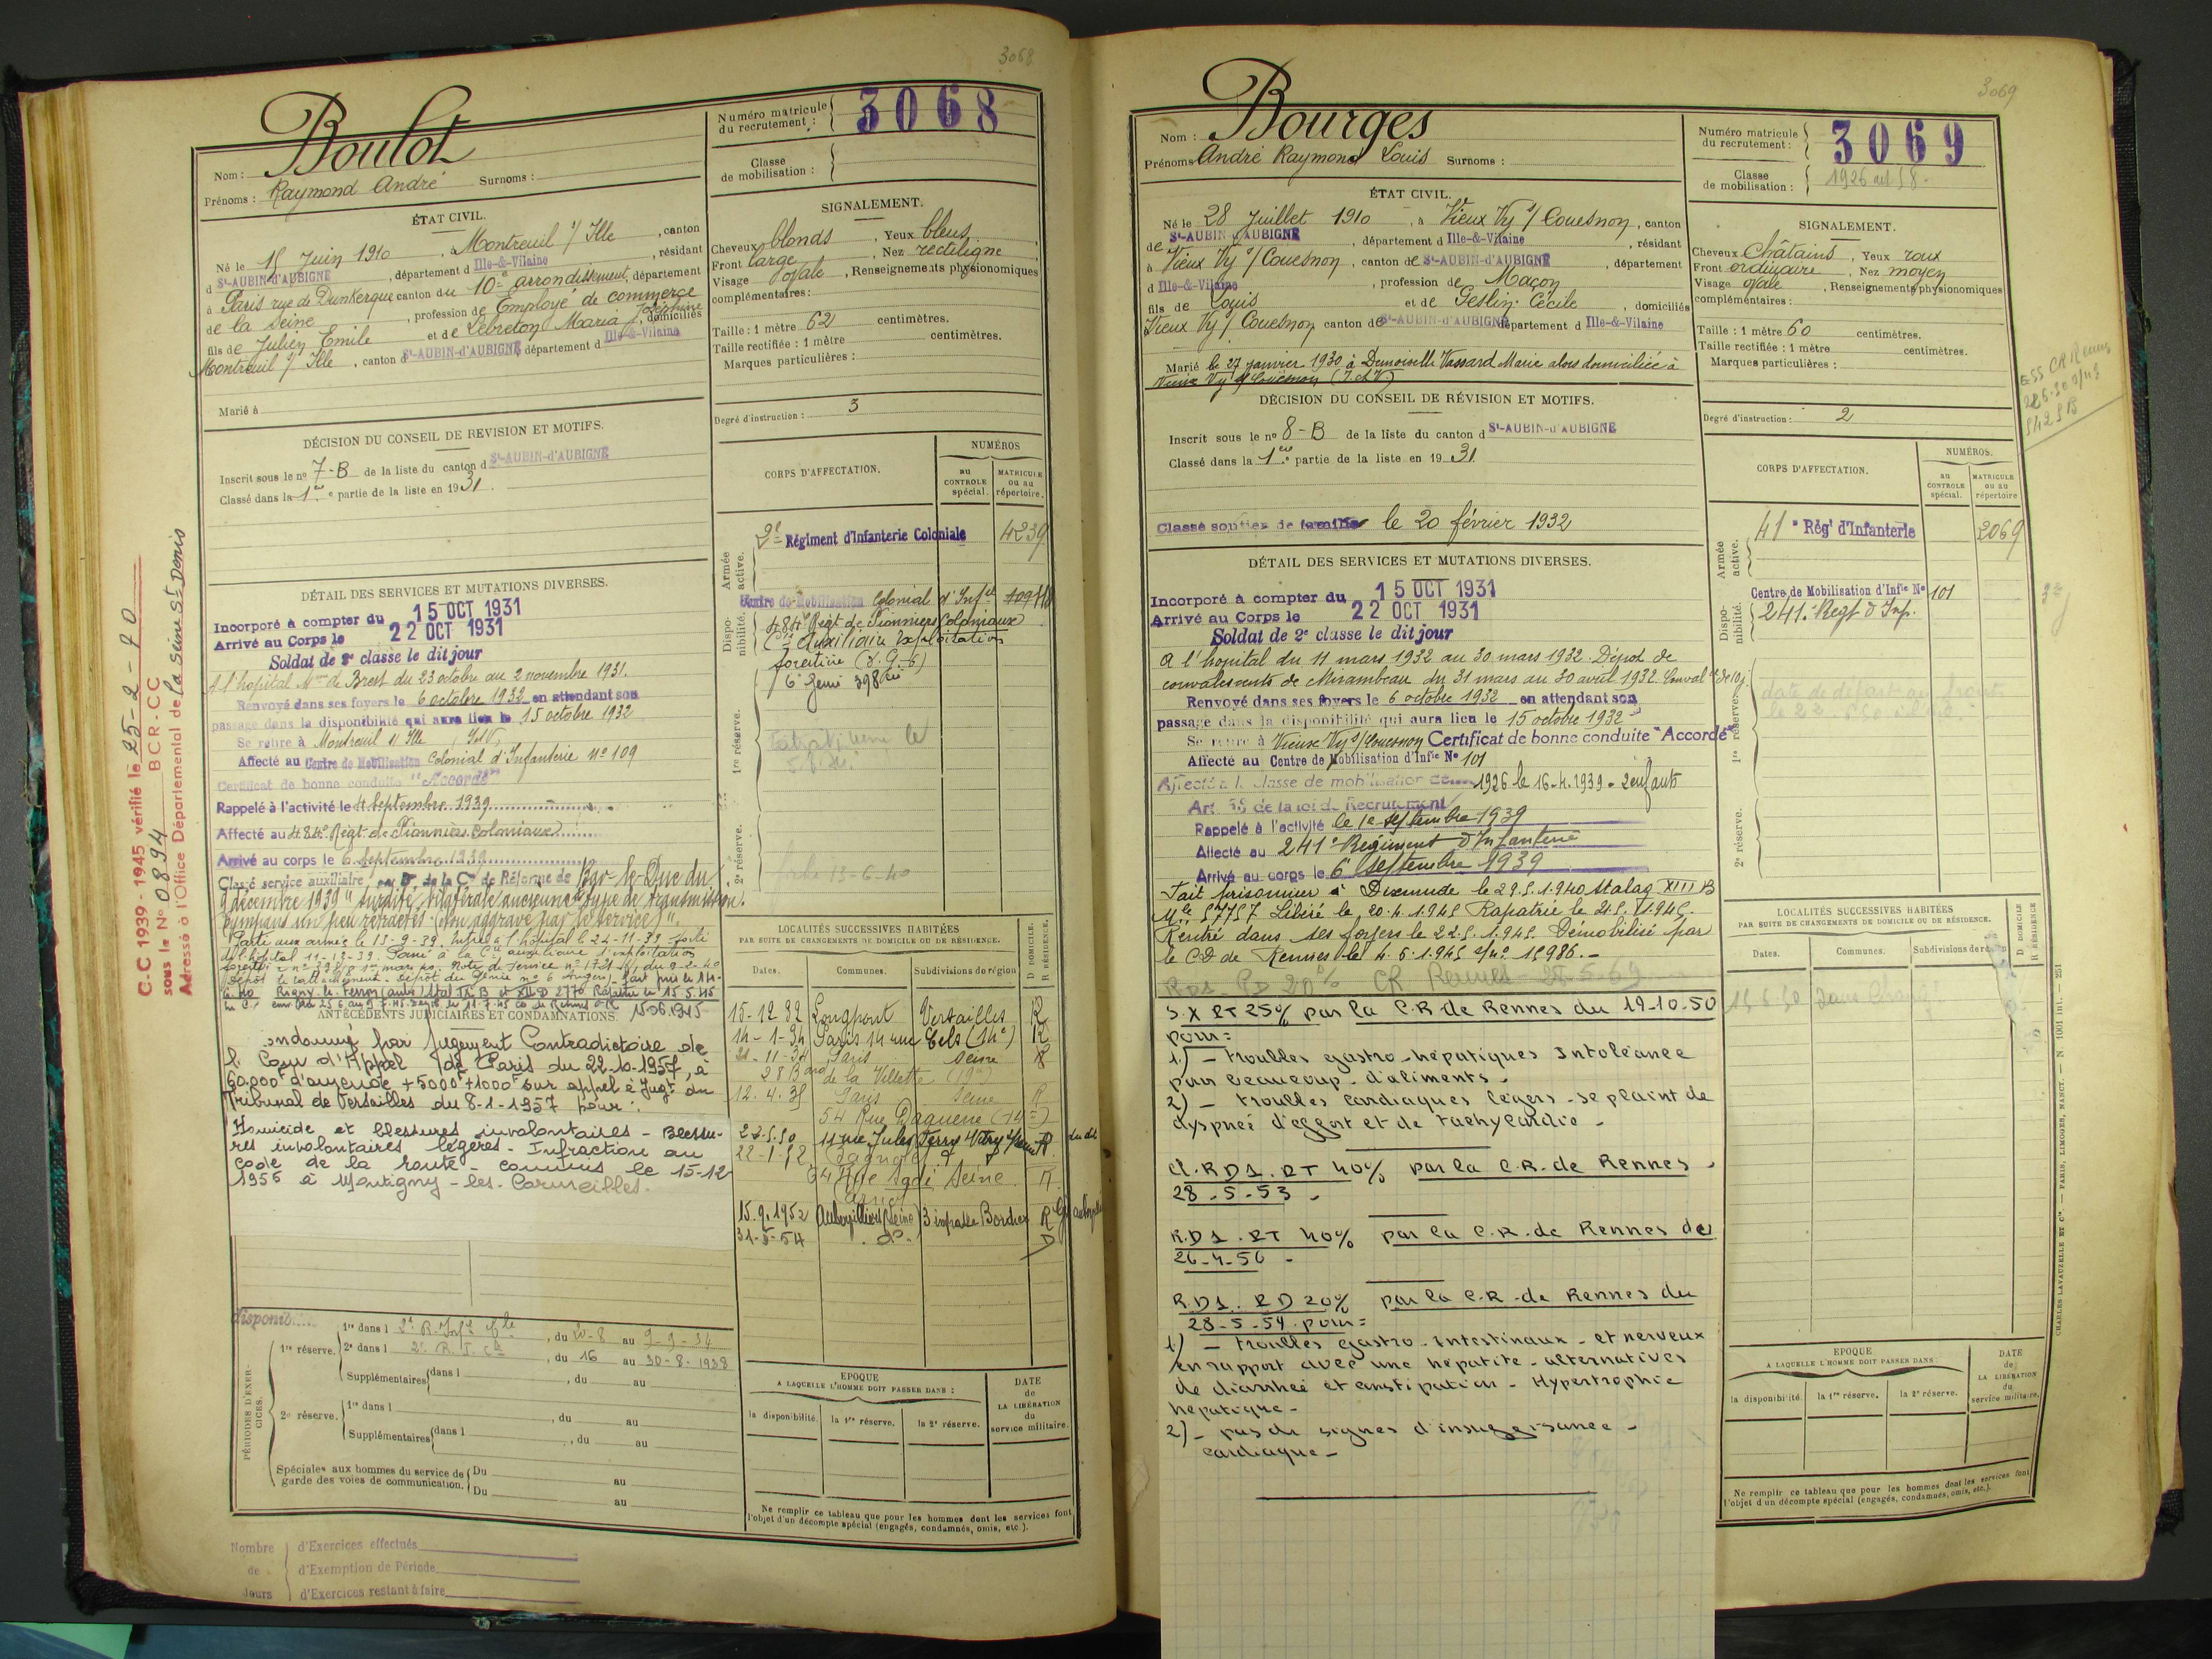 3068
Boulot
Nom :
Prénoms : Raymond André Surnoms :
Numéro matricule du recrutement : 3068
Classe de mobilisation :
ÉTAT CIVIL.
Né le 15 Juin 1910, à Montreuil s/ Ille, canton
d St-AUBIN-d'AUBIGNE, département d Ille-&-Vilaine, résidant
à Paris rue de Dunkerque canton du 10e arrondissement, département
de la Seine, profession de Employé de commerce
fils de Julien Emile et de Lebreton Maria Joséphine, domiciliés
Montreuil s/ Ille, canton d St-AUBIN-d'AUBIGNE département d Ille-&-Vilaine
Marié à
SIGNALEMENT.
Cheveux blonds, Yeux bleus
Front large, Nez rectiligne
Visage ovale, Renseignements physionomiques
complémentaires :
Taille : 1 mètre 62 centimètres.
Taille rectifiée : 1 mètre centimètres.
Marques particulières :
Degré d'instruction : 3
DÉCISION DU CONSEIL DE REVISION ET MOTIFS.
Inscrit sous le no 7-B de la liste du canton d St-AUBIN-d'AUBIGNE
Classé dans la 1ere partie de la liste en 1931.
CORPS D'AFFECTATION.
NUMÉROS
au CONTROLE spécial.
MATRICULE ou au répertoire.
Armée active.
2e Régiment d'Infanterie Coloniale 4239
Disponibilité.
Centre de Mobilisation Colonial d'Infie 109
484e Régt de Pionniers Coloniaux
Cie Auxiliaire Exploitation
forestière
6e Génie
1re réserve.
2e réserve.
DÉTAIL DES SERVICES ET MUTATIONS DIVERSES.
Incorporé à compter du 15 OCT 1931
Arrivé au Corps le 22 OCT 1931
Soldat de 2e classe le dit jour
A l'hôpital Mme de Brest du 23 octobre au 2 novembre 1931.
Renvoyé dans ses foyers le 6 octobre 1932 en attendant son
passage dans la disponibilité qui aura lieu le 15 octobre 1932
Se retire à Montreuil s/ Ille, I et V,
Affecté au Centre de Mobilisation Colonial d'Infanterie No 109
Certificat de bonne conduite "Accordé"
Rappelé à l'activité le 4 Septembre 1939
Affecté au 484e Régt de Pionniers Coloniaux
Arrivé au corps le 6 Septembre 1939
Classé service auxiliaire de la Cn de Réforme de Bar-le-Duc du
9 décembre 1939 "surdité bilatérale ancienne type de transmission.
tympans un peu rétractés (non aggravé par le service)".
Parti aux armées le 13-9-39. Entré à l'hôpital le 24-11-39 sorti
de l'hôpital 11-12-39. Passé à la Cie auxiliaire d'exploitation
C.-C 1939-1945 vérifié le 25-2-70
sous le No 0894 BCR-CC
Adressé à l'Office Départemental de la Seine St Denis
ANTÉCÉDENTS JUDICIAIRES ET CONDAMNATIONS
ondamné par Jugement Contradictoire de
l. Cour d'Appel de Paris du 22-10-1957, à
60.000f d'amende + 5000f + 1000f sur appel à Jugt du
Tribunal de Versailles du 8-1-1957 pour :
Homicide et blessures involontaires - Blessu-
res involontaires légères - Infraction au
code de la route - commis le 15-12
1956 à Montigny-les-Cormeilles.
LOCALITÉS SUCCESSIVES HABITÉES
PAR SUITE DE CHANGEMENTS DE DOMICILE OU DE RÉSIDENCE.
Dates. Communes. Subdivisions de région D DOMICILE. R RÉSIDENCE.
15-12-32 Longpont Versailles R
14-1-34 Paris 14 rue Cels (14e) R
21-11-34 Paris Seine R
28 Bard de la Villette (19e)
12.4.35 Paris Seine R
54 Rue Daguerre (14e)
23.5.50 11 rue Jules Ferry Vitry s/Seine R
22-1-52 Bagnolet
64 Rue Sadi Seine R
Carnot
15.9.1952 Aubervilliers (Seine) 3 impasse Bordier R
31-5-54 do D
PÉRIODES D'EXERCICES.
1re réserve.
1re dans l 2e R. Infie Cle, du 20-8 au 9-9-34
2e dans l 2e R. I. Cle, du 16 au 30-8-1938
Supplémentaires dans l , du au
2e réserve.
1re dans l , du au
Supplémentaires dans l , du au
Spéciales aux hommes du service de garde des voies de communication. Du au
Du au
EPOQUE
A LAQUELLE L'HOMME DOIT PASSER DANS :
la disponibilité. la 1re réserve. la 2e réserve.
DATE de LA LIBÉRATION du service militaire.
Ne remplir ce tableau que pour les hommes dont les services font
l'objet d'un décompte spécial (engagés, condamnés, omis, etc.).
Nombre de Jours
d'Exercices effectués
d'Exemption de Période
d'Exercices restant à faire
3069
Nom : Bourges
Prénoms André Raymond Louis Surnoms :
Numéro matricule du recrutement : 3069
Classe de mobilisation : 1926
ÉTAT CIVIL.
Né le 28 Juillet 1910, à Vieux Vy s/ Couesnon, canton
de St-AUBIN-d'AUBIGNE, département d Ille-&-Vilaine, résidant
à Vieux Vy s/ Couesnon, canton de St-AUBIN-d'AUBIGNE, département
d Ille-&-Vilaine, profession de Maçon
fils de Louis et de Geslin Cécile, domiciliés
Vieux Vy s/ Couesnon canton de St-AUBIN-d'AUBIGNE département d Ille-&-Vilaine
Marié le 27 janvier 1930 à Demoiselle Vassard Marie alors domiciliée à
Vieux Vy s/ Couesnon (I et V)
SIGNALEMENT.
Cheveux Châtains, Yeux roux
Front ordinaire, Nez moyen
Visage ovale, Renseignements physionomiques
complémentaires :
Taille : 1 mètre 60 centimètres.
Taille rectifiée : 1 mètre centimètres.
Marques particulières :
Degré d'instruction : 2
DÉCISION DU CONSEIL DE RÉVISION ET MOTIFS.
Inscrit sous le no 8-B de la liste du canton d St-AUBIN-d'AUBIGNE
Classé dans la 1ere partie de la liste en 1931.
Classé soutien de famille le 20 février 1932
CORPS D'AFFECTATION.
NUMÉROS.
au CONTROLE spécial.
MATRICULE ou au répertoire
Armée active.
41e Régt d'Infanterie 2069
Disponibilité.
Centre de Mobilisation d'Infie No 101
241e Regt d'Inf.
1re réserve.
2e réserve.
DÉTAIL DES SERVICES ET MUTATIONS DIVERSES.
Incorporé à compter du 15 OCT 1931
Arrivé au Corps le 22 OCT 1931
Soldat de 2e classe le dit jour
A l'hopital du 11 mars 1932 au 30 mars 1932. Dépôt de
convalescents de Mirambeau du 31 mars au 30 avril 1932.
Renvoyé dans ses foyers le 6 octobre 1932 en attendant son
passage dans la disponibilité qui aura lieu le 15 octobre 1932
Se retire à Vieux Vy s/Couesnon Certificat de bonne conduite "Accordé"
Affecté au Centre de Mobilisation d'Infie No 101
Affecté à la classe de mobilisation 1926 le 16-4-1939 - 2 enfants
Art. 58 de la loi de Recrutement
Rappelé à l'activité le 1e septembre 1939
Affecté au 241e Régiment d'Infanterie
Arrivé au corps le 6 septembre 1939
Fait prisonnier à Dixmude le 29.5.1940 Stalag XIII B
Mle 57757 Libéré le 20.4.1945 Rapatrié le 21.5.1945.
Rentré dans ses foyers le 22.5.1945. Démobilisé par
le CD de Rennes le 4.6.1945 s/no 15986.-
S.X RT 25% par la C.R de Rennes du 19-10-50
pour =
1) - troubles gastro-hépatiques Intoléance
pour beaucoup d'aliments -
2) - troubles cardiaques légers - se plaint de
dyspnée d'effort et de tachycardie -
RD1. RT 40% par la C.R. de Rennes
28-5-53 -
R.D1. RT 40% par la C.R. de Rennes des
26-4-56 -
R.D1. RD 20% par la C.R. de Rennes du
28-5-59 pour =
1) - troubles gastro-intestinaux - et nerveux
en rapport avec une hépatite - alternatives
de diarrhée et constipation - Hypertrophie
hépatique -
2) - pas de signes d'insuffisance -
cardiaque -
LOCALITÉS SUCCESSIVES HABITÉES
PAR SUITE DE CHANGEMENTS DE DOMICILE OU DE RÉSIDENCE.
Dates. Communes. Subdivisions de région D DOMICILE R RÉSIDENCE
EPOQUE
A LAQUELLE L'HOMME DOIT PASSER DANS :
la disponibilité. la 1re réserve. la 2e réserve.
DATE de LA LIBÉRATION du service militaire.
Ne remplir ce tableau que pour les hommes dont les services font
l'objet d'un décompte spécial (engagés, condamnés, omis, etc.).
CHARLES-LAVAUZELLE ET Cie. — PARIS, LIMOGES, NANCY. — N 1001 int. — 251